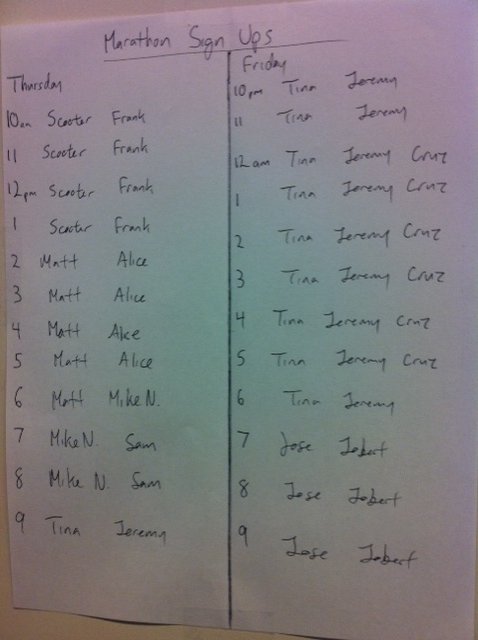 Marathon Sign Ups
Thursday
10am Scooter Frank
11 Scooter Frank
12pm Scooter Frank
1 Scooter Frank
2 Matt Alice
3 Matt Alice
4 Matt Alice
5 Matt Alice
6 Matt Mike N.
7 Mike N. Sam
8 Mike N. Sam
9 Tina Jeremy
Friday
10pm Tina Jeremy
11 Tina Jeremy
12am Tina Jeremy Cruz
1 Tina Jeremy Cruz
2 Tina Jeremy Cruz
3 Tina Jeremy Cruz
4 Tina Jeremy Cruz
5 Tina Jeremy Cruz
6 Tina Jeremy
7 Jose Jobert
8 Jose Jobert
9 Jose Jobert